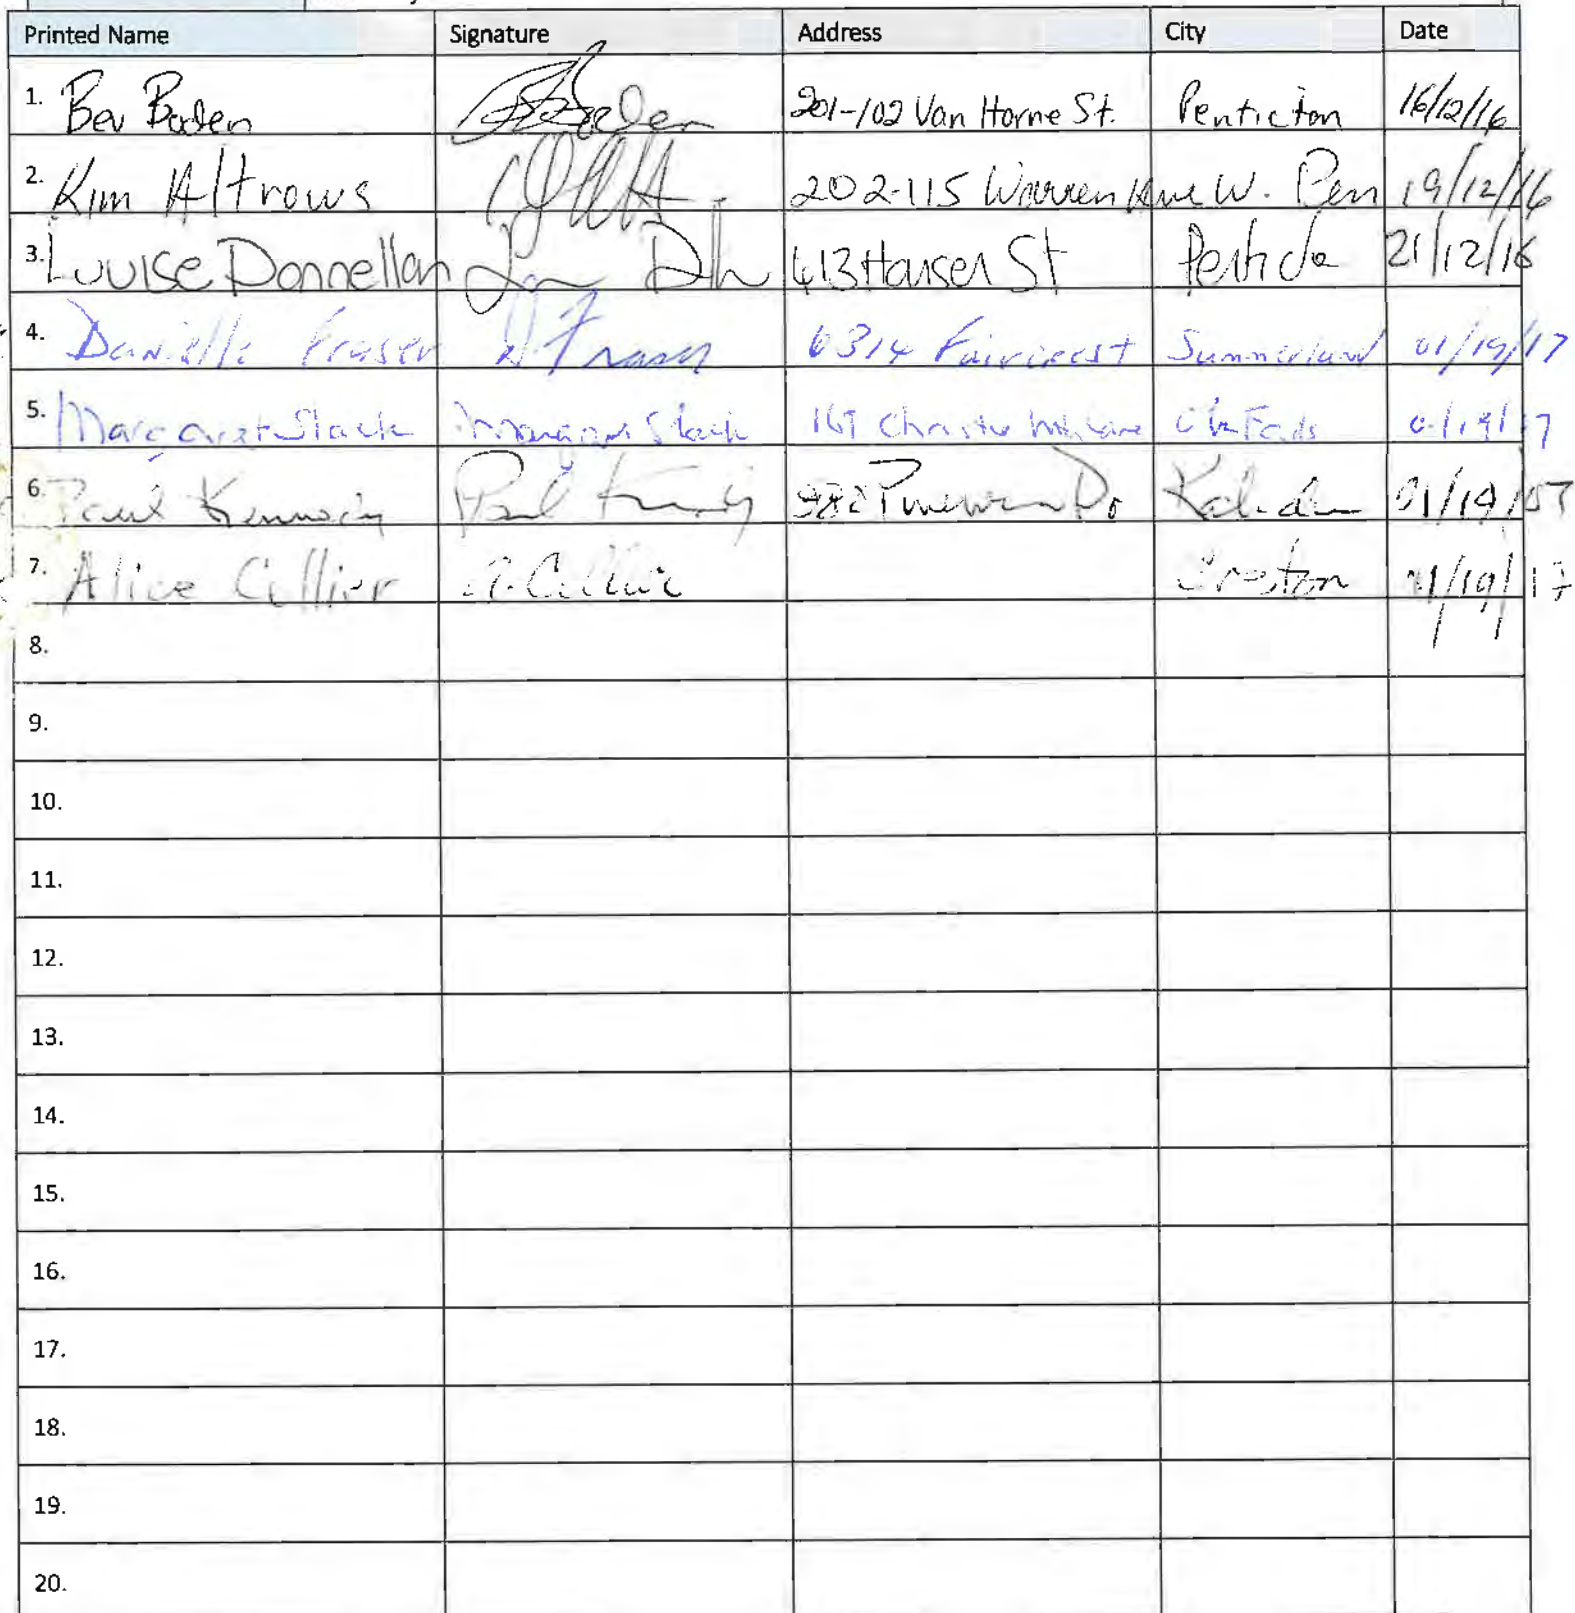 Printed Name Signature Address City Date
1. Bev Boden Boden 201-102 Van Horne St. Penticton 16/12/16
2. Kim Altrows 202-115 Warren Ave W. Pen 19/12/16
3. Louise Donnellan 413 Hansen St 21/12/16
4. Danielle Fraser D Fraser 6314 Faircrest Summerland 01/19/17
5. Margaret Slack Margaret Slack Ok Falls
6. Paul Kennedy Paul Kennedy
7. Alice Collier A. Collier Creston
8.
9.
10.
11.
12.
13.
14.
15.
16.
17.
18.
19.
20.